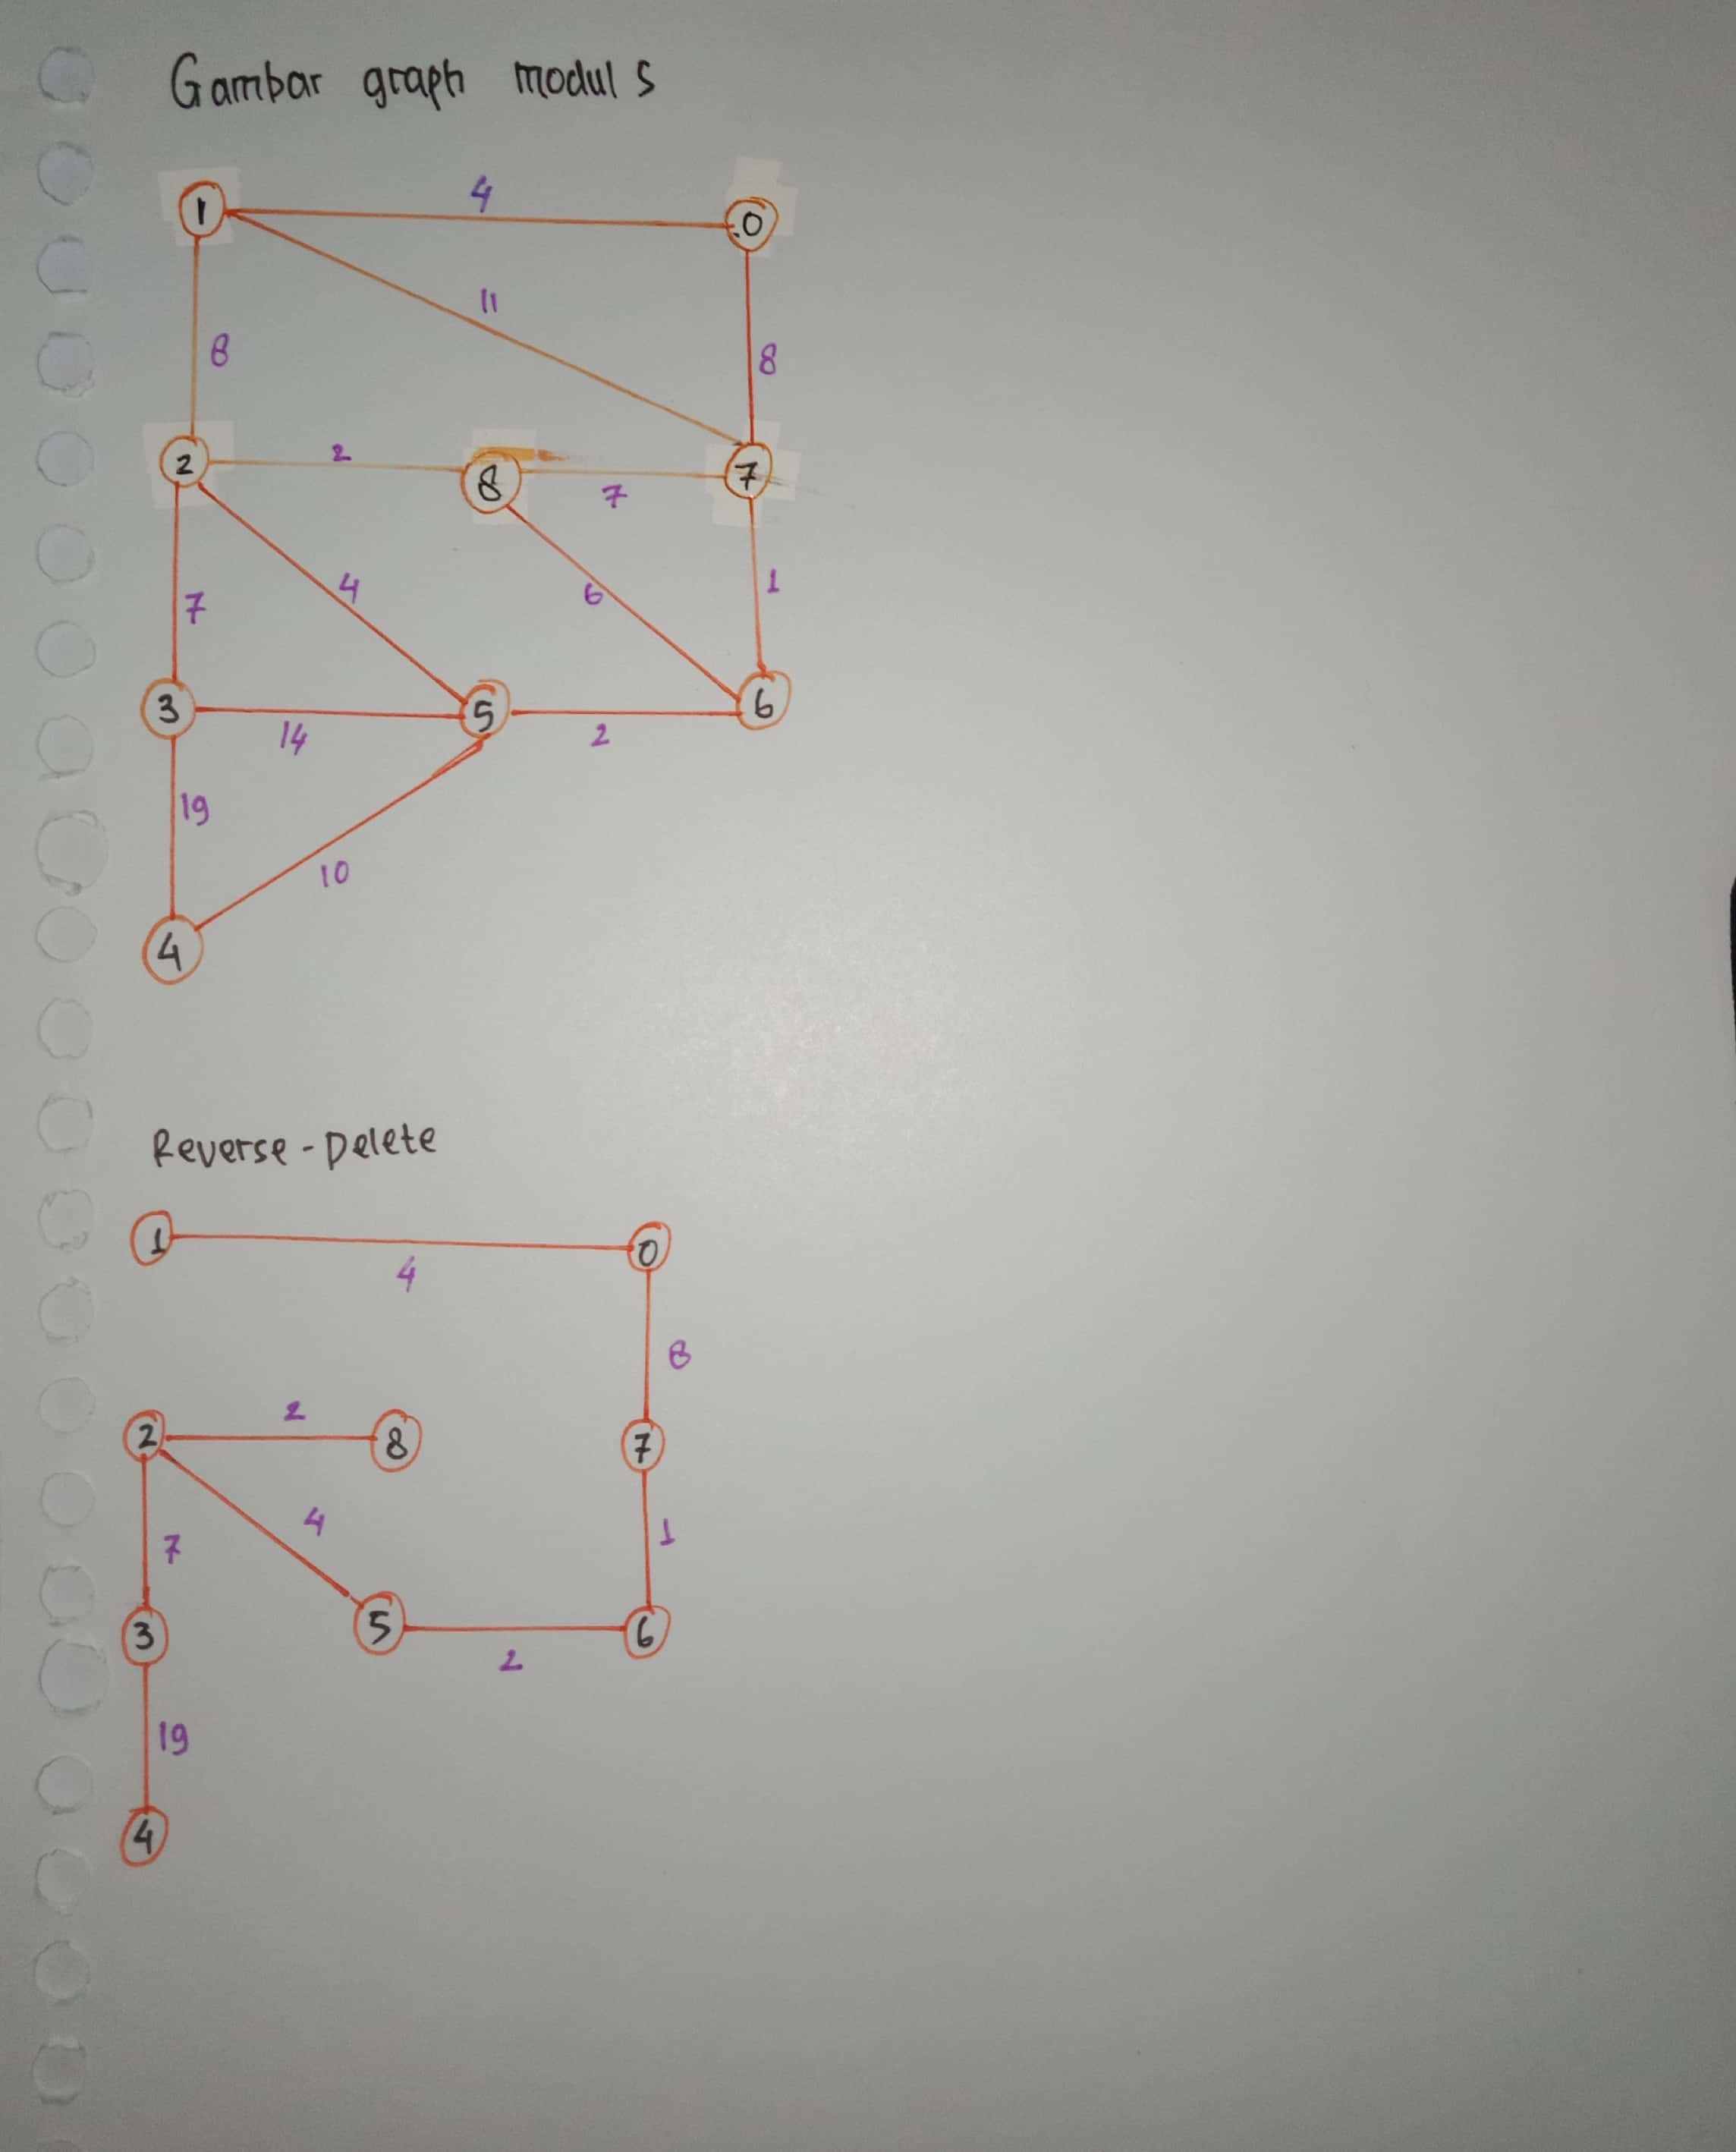 Gambar graph modul 5
1 4 0
11
8 8
2 2 8 7 7
7 4 6 1
3 14 5 2 6
19
10
4
Reverse-Delete
1 4 0
8
2 2 8 7
7 4 1
3 5 2 6
19
4